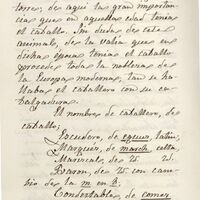 torres, de aqui la gran importan-
cia que en aquella edad tenia
el caballo. Sin duda de este
animal, de la valia que en
dicha época tenia el caballo
procede toda la nobleza de
la Europa moderna, tan se ha-
llaba el caballero con su ca-
balgadura.
El nombre de caballero, de
caballo;
Escudero, de equus, latin,
Marqués, de march, celta,
Mariscal, de id. id.
Baron, de id con cam-
bio de la m en B.
Condestable, de comes